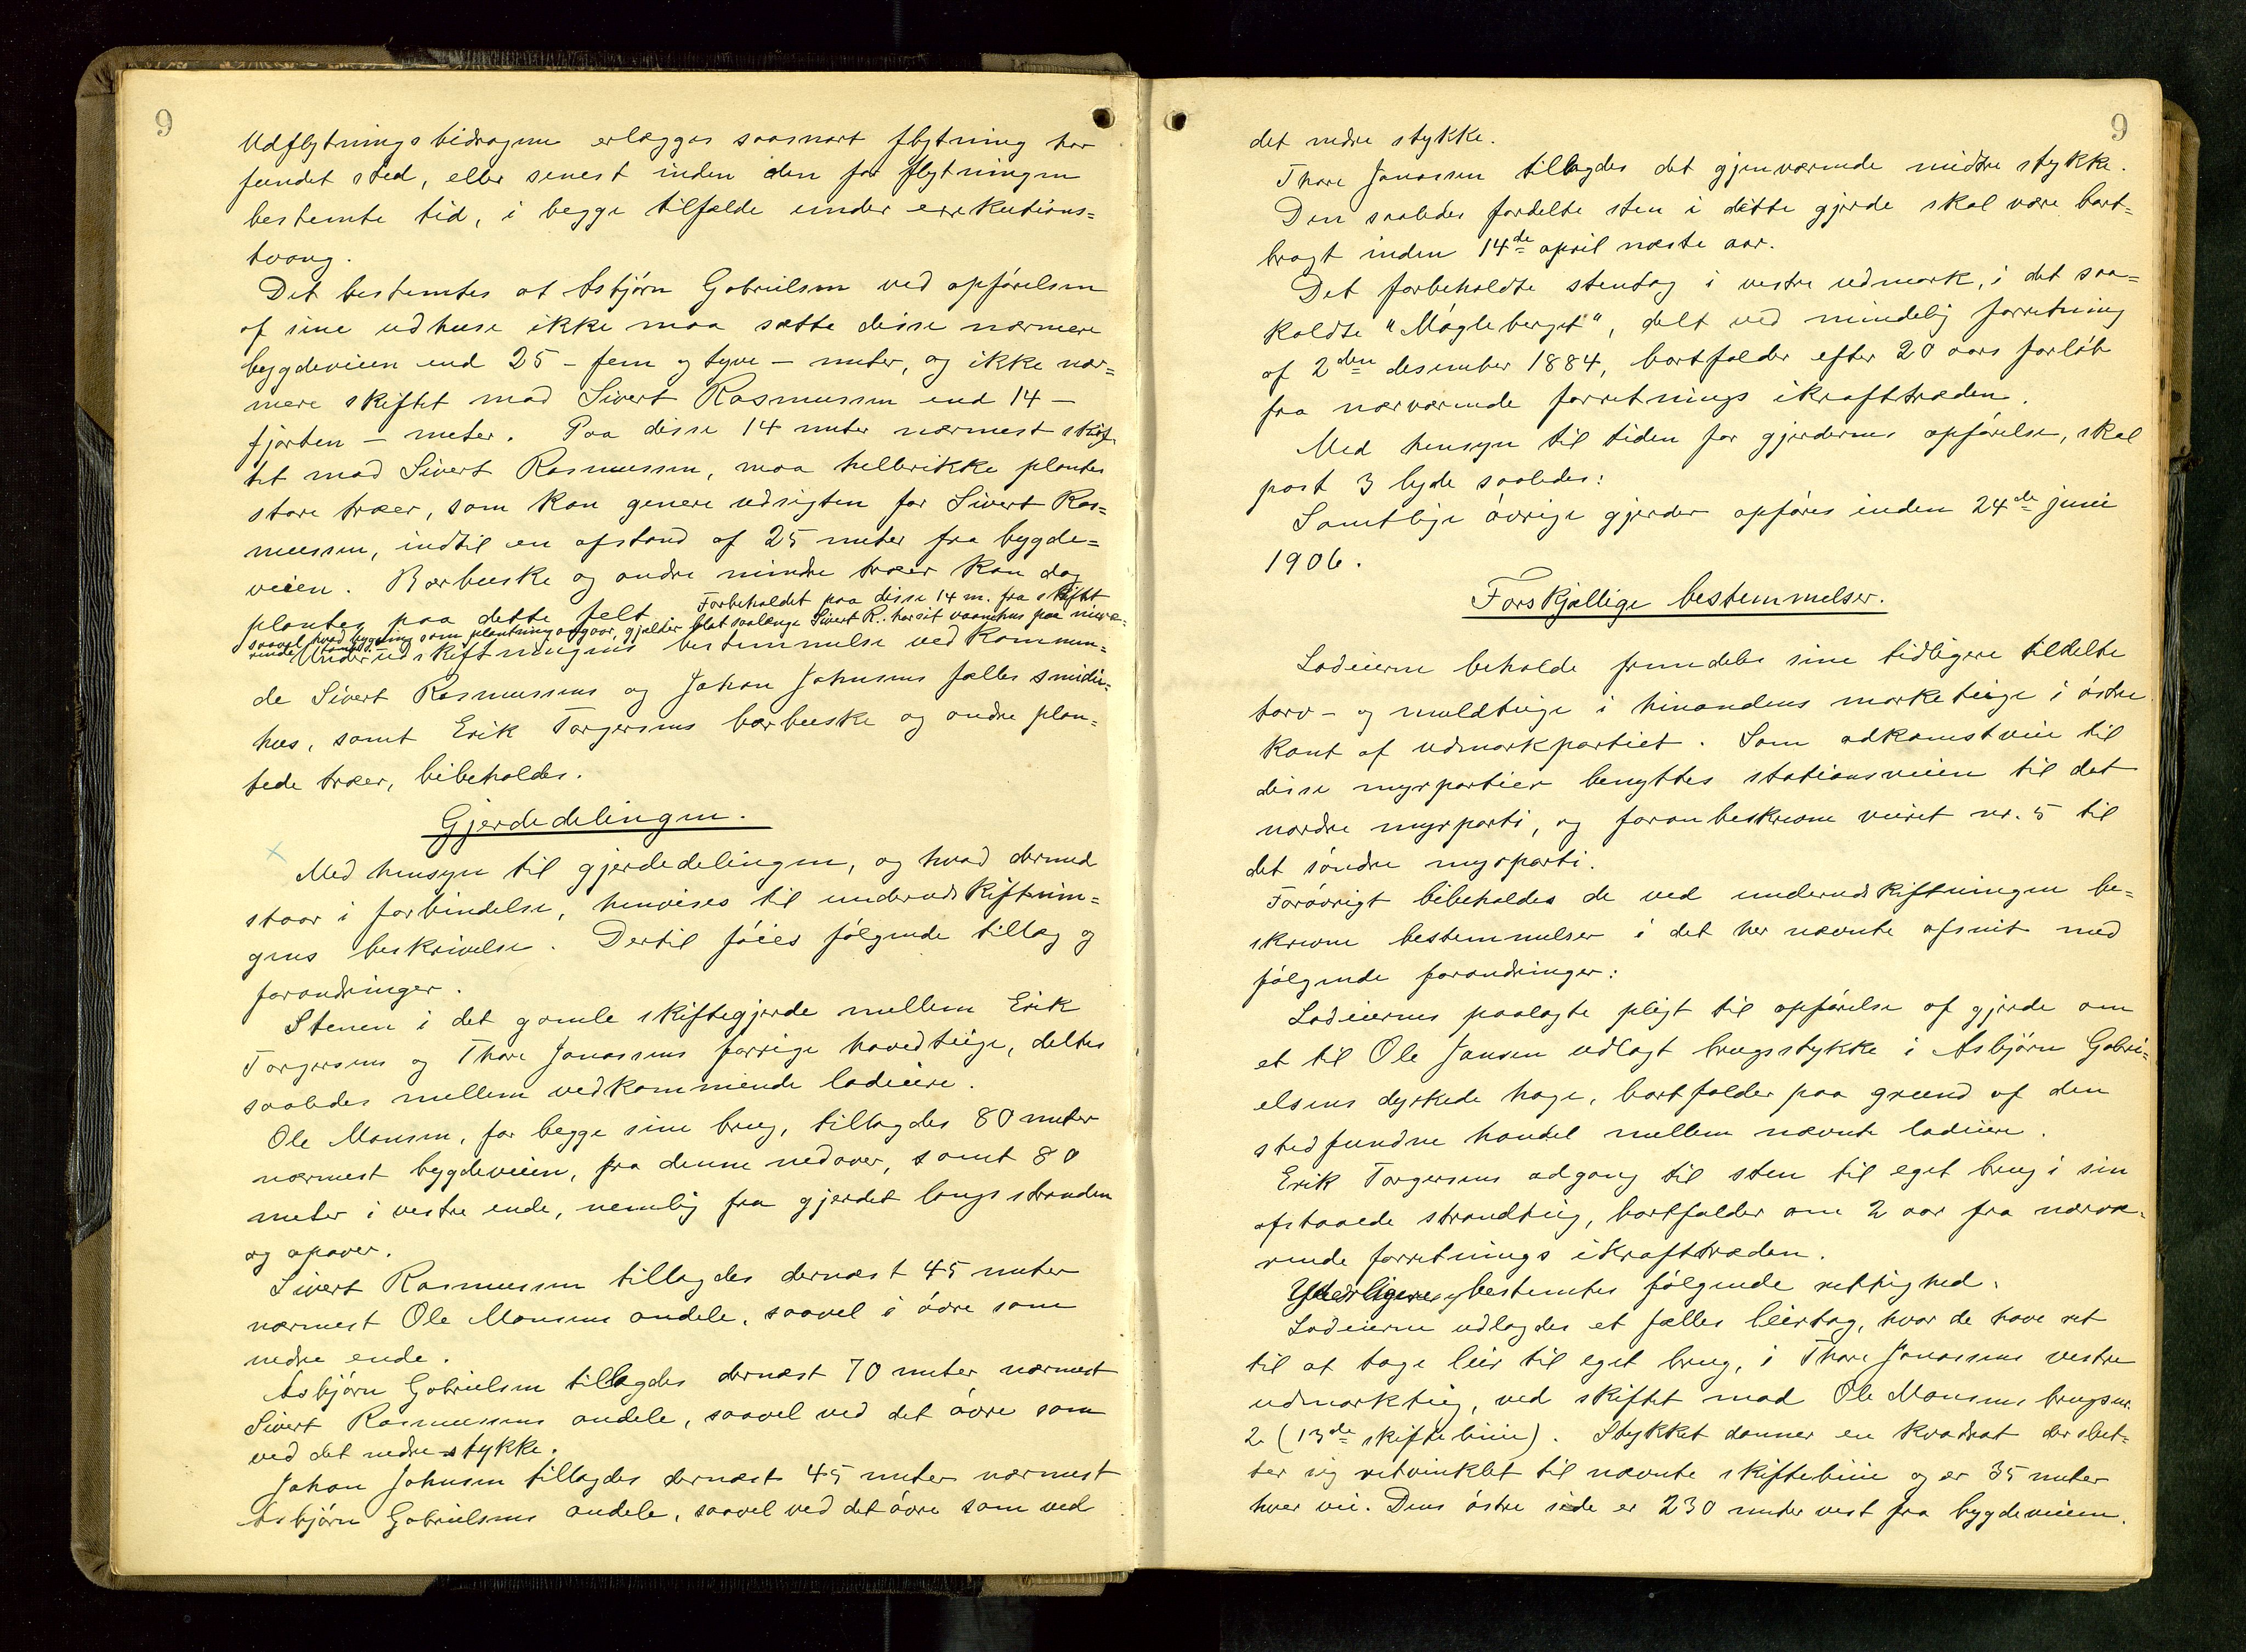 9
Udflytningsbidragene erlægges saasnart flytning har
fundet sted, eller senest inden den for flytningen
bestemte tid, i begge tilfælde under exekutions=
tvang.
Det bestemtes at Asbjörn Gabrielsen ved opförelsen
af sine udhuse ikke maa sætte disse nærmere
bygdeveien end 25 - fem og tyve - meter, og ikke nær=
mere skiftet mod Sivert Rasmussen end 14 -
fjorten - meter. Paa disse 14 meter nærmest skif-
tet mod Sivert Rasmussen, maa hellerikke plantes
store træer, som kan genere udsigten for Sivert Ras=
mussen, indtil en afstand af 25 meter fra bygde=
veien. Bærbuske og andre mindre træer kan dog
plantes paa dette felt. Forbeholdet paa disse 14 m. fra skiftet
saavel hvad bygning som plantning angaar, gjælder blot saalænge Sivert R. har sit vaanhus paa nuvæ=
rende tomt.
Underudskiftningens bestemmelse vedkommen=
de Sivert Rasmussens og Johan Johnsens fælles smidie=
hus, samt Erik Torgersens bærbuske og andre plan=
tede træer, bibeholdes.
Gjerdedelingen.
Med hensyn til gjerdedelingen, og hvad dermed
staar i forbindelse, henvises til underudskiftnin=
gens beskrivelse. Dertil föies fölgende tillæg og
forandringer.
Stenen i det gamle skiftegjerde mellem Erik
Torgersens og Thore Jonassens forrige hovedteige, deltes
saaledes mellem vedkommende lodeiere.
Ole Monsen, for begge sine brug, tillagdes 80 meter
nærmest bygdeveien, fra denne nedover, samt 80
meter i vestre ende, nemlig fra gjerdet langs stranden
og opover.
Sivert Rasmussen tillagdes dernæst 45 meter
nærmest Ole Monsens andele, saavel i övre som
nedre ende.
Asbjörn Gabrielsen tillagdes dernæst 70 meter nærmest
Sivert Rasmussens andele, saavel ved det övre som
ved det nedre stykke.
Johan Johnsen tillagdes dernæst 45 meter nærmest
Asbjörn Gabrielsens andele, saavel ved det övre som ved
9
det nedre stykke.
Thore Jonassen tillagdes det gjenværende midtre stykke.
Den saaledes fordelte sten i dette gjerde skal være bort=
bragt inden 14de april næste aar.
Det forbeholdte stentag i vestre udmark, i det saa=
kaldte "Mågleberget", delt ved mindelig forretning
af 2den desember 1884, bortfalder efter 20 aars forlöb
fra nærværende forretnings ikrafttræden.
Med hensyn til tiden for gjerdernes opförelse, skal
post 3 lyde saaledes:
Samtlige övrige gjerder opföres inden 24de juni
1906.
Forskjællige bestemmelser.
Lodeierne beholde fremdeles sine tidligere tildelte
torv- og muldteige i hinandens marketeige i östre
kant af udmarkpartiet. Som adkomstvei til
disse myrpartier benyttes stationsveien til det
nordre myrparti, og foran beskrevne veiret nr. 5 til
det söndre myrparti.
Forövrigt bibeholdes de ved underudskiftningen be=
skrevne bestemmelser i det her nævnte afsnit med
fölgende forandringer:
Lodeiernes paalagte pligt til opförelse af gjerde om
et til Ole Jansen udlagt brugsstykke i Asbjörn Gabri=
elsens dyrkede hage, bortfalder paa grund af den
stedfundne handel mellem nævnte lodeiere.
Erik Torgersens adgang til sten til eget brug i sin
afstaaede strandteig, bortfalder om 2 aar fra nærvæ=
rende forretnings ikrafttræden.
Yderligere bestemtes fölgende rettighed.
Lodeierne udlagdes et fælles leirtag, hvor de have ret
til at tage leir til eget brug, i Thore Jonassens vestre
udmarkteig, ved skiftet mod Ole Monsens brugsnr.
2 (13de skiftelinie). Stykket danner en kvadrat der slut=
ter sig retvinklet til nævnte skiftelinie og er 35 meter
hver vei. Dens östre side er 230 meter vest fra bygdeveien.